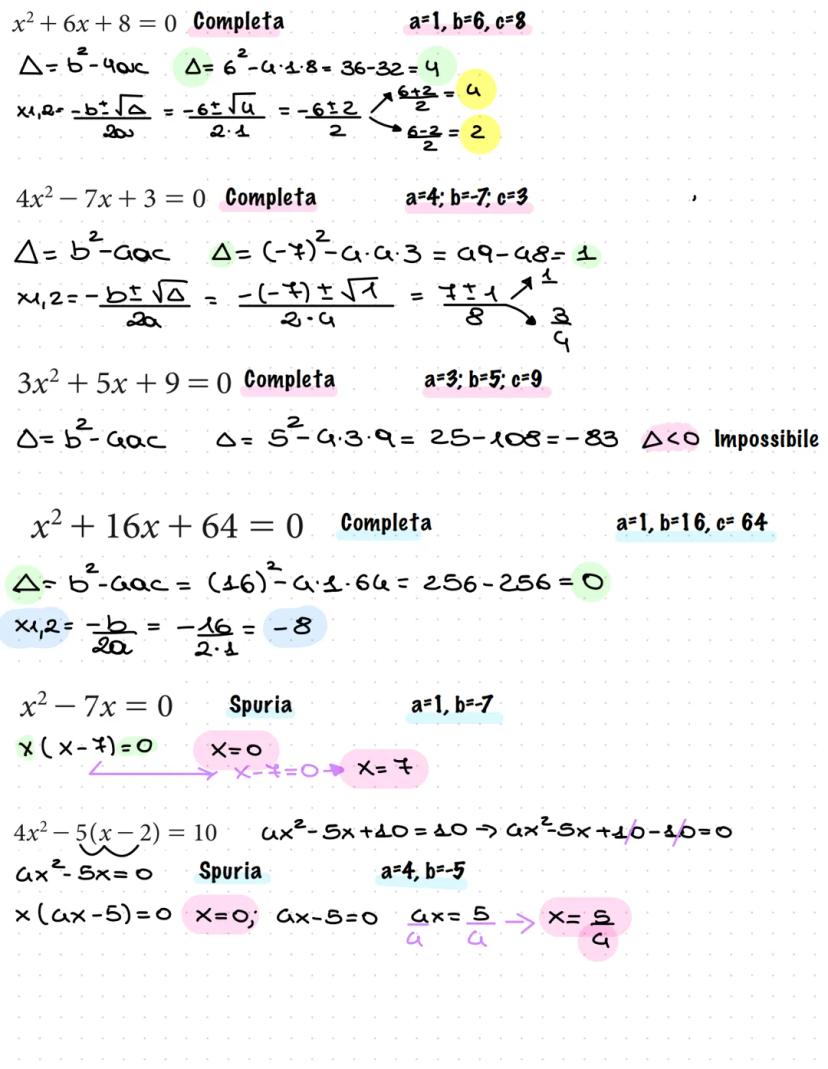 x² + 6x + 8 = 0 Completa a=1, b=6, c=8
Δ = b²-4ac Δ = 6²-4·1·8 = 36-32 = 4
x1,2 = -b±√Δ/2a = -6±√4/2·1 = -6±2/2 6+2/2 = 4
6-2/2 = 2
4x² − 7x + 3 = 0 Completa a=4; b=-7; c=3
Δ = b²-4ac Δ = (-7)²-4·4·3 = 49-48 = 1
x1,2 = -b±√Δ/2a = -(-7)±√1/2·4 = 7±1/8 1
3/4
3x² + 5x + 9 = 0 Completa a=3; b=5; c=9
Δ = b²-4ac Δ = 5²-4·3·9 = 25-108 = -83 Δ<0 Impossibile
x² + 16x + 64 = 0 Completa a=1, b=16, c= 64
Δ = b²-4ac = (16)²-4·1·64 = 256-256 = 0
x1,2 = -b/2a = -16/2·1 = -8
x² − 7x = 0 Spuria a=1, b=-7
x(x-7)=0 x=0
x-7=0 → x=7
4x² − 5(x − 2) = 10 4x²-5x+10=10 → 4x²-5x+10-10=0
4x²-5x=0 Spuria a=4, b=-5
x(4x-5)=0 x=0; 4x-5=0 4x/4 = 5/4 → x=5/4